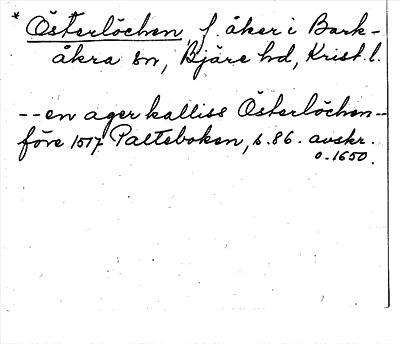 * Österlöchen, f. åker i Bark-
åkra sn, Bjäre hd, Krist. l.
-- en ager kalliss Österlöchen --
före 1517 Palteboken, s. 86. avskr.
o. 1650.